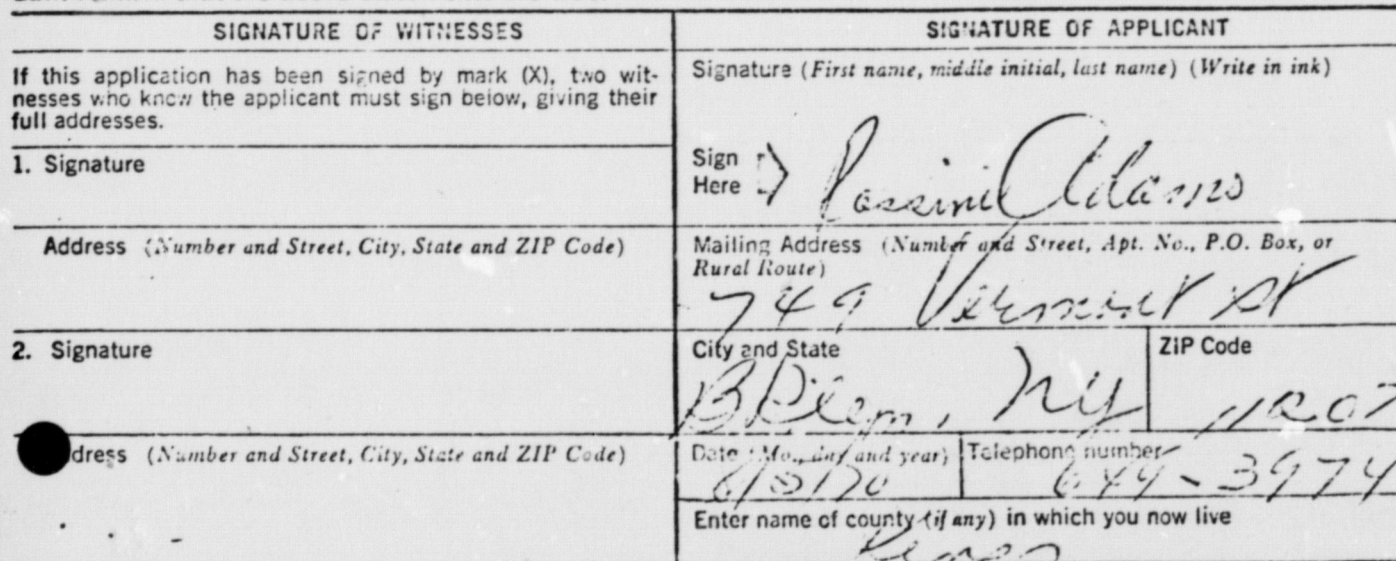 SIGNATURE OF WITNESSES
If this application has been signed by mark (X), two wit-
nesses who know the applicant must sign below, giving their
full addresses.
1. Signature
Address (Number and Street, City, State and ZIP Code)
2. Signature
dress (Number and Street, City, State and ZIP Code)
SIGNATURE OF APPLICANT
Signature (First name, middle initial, last name) (Write in ink)
Sign
Here
Adams
Mailing Address (Number and Street, Apt. No., P.O. Box, or
Rural Route)
749 Vermont St
City and State
NY
ZIP Code
11207
Date (Mo., day and year)
Telephone number
649-3974
Enter name of county (if any) in which you now live
Kings